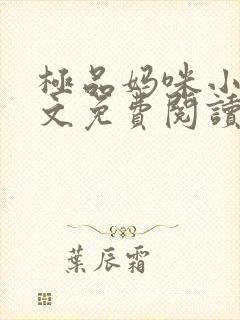 極品妈咪小
文免費閱讀
葉辰霜